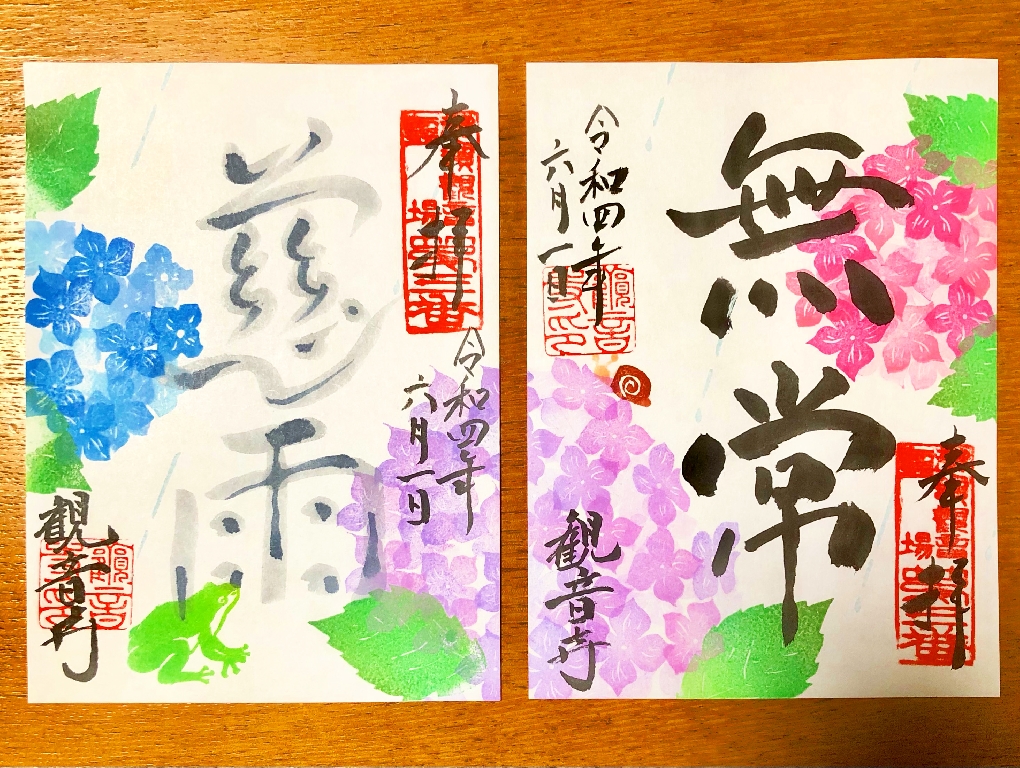 奉拝
慈雨
令和四年
六月一日
観音寺
奉拝
無常
令和四年
六月一日
観音寺